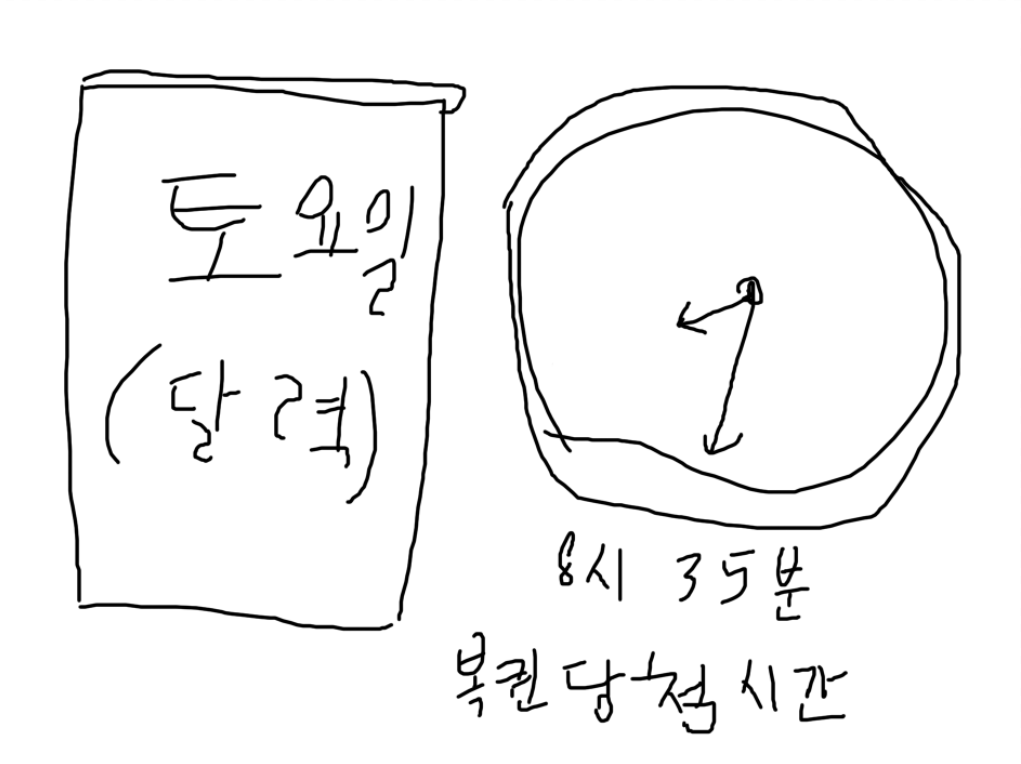 토요일
(달력)
8시 35분
복권당첨시간